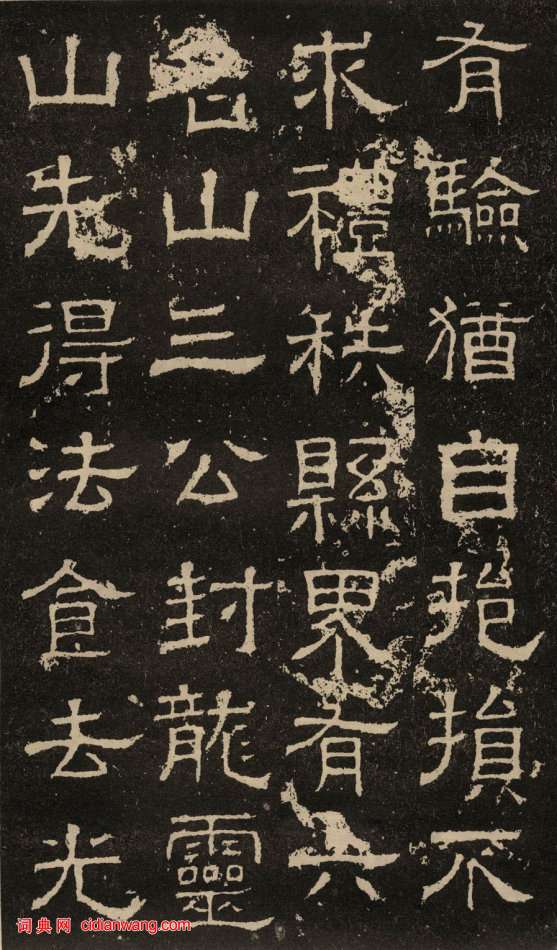 有驗猶自抱損不
求禮秩縣界有六
名山三公封龍靈
山先得法食去光
词典网 cidianwang.com